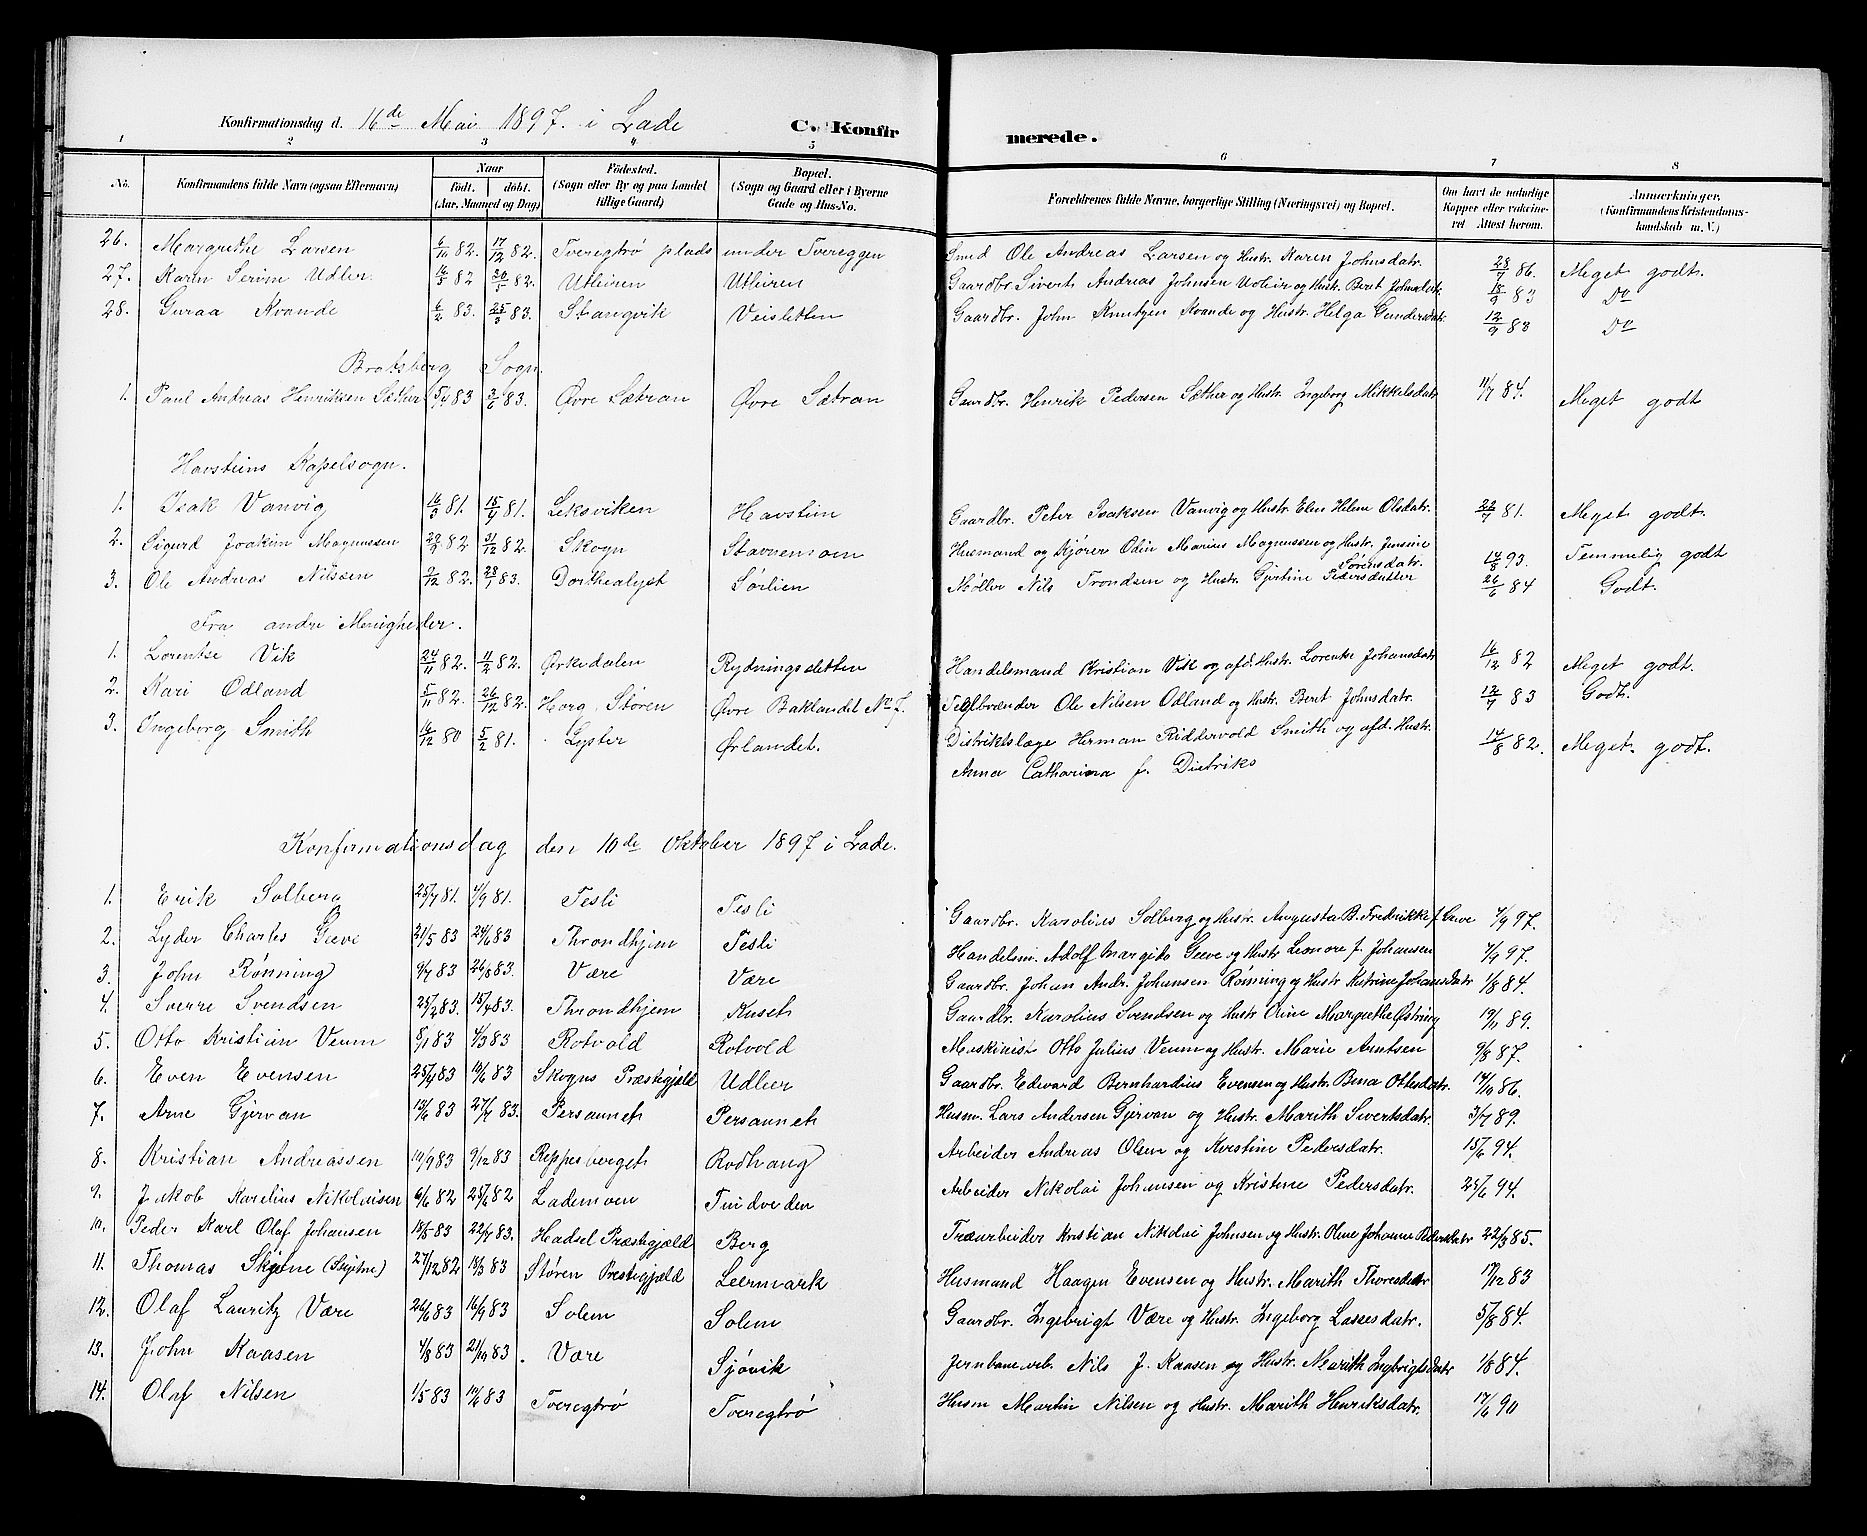 Konfirmationsdag d. 16de Mai 1897. i Lade C. Konfir merede.
1 2 3 4 5 6 7 8
No. Konfirmandens fulde Navn (ogsaa Efternavn) Naar født. døbt. (Aar, Maaned og Dag) Fødested. (Sogn eller By og paa Landet tillige Gaard) Bopæl. (Sogn og Gaard eller i Byerne Gade og Hus-No. Forældrenes fulde Navne, borgerlige Stilling (Næringsvei) og Bopæl. Om havt de naturlige Kopper eller vaccineret Attest herom. Anmærkninger. (Konfirmandens Kristendomskundskab m. V.)
26. Margrethe Larsen 6/10 82. 17/12 82. Tveregtrø plads under Tvereggen Smed Ole Andreas Larsen og Hustr. Karen Johnsdatr. 28/7 86. Meget godt.
27. Karen Serine Udler. 16/3 82 20/5 82. Utleiren Utleiren Gaardbr. Sivert Andreas Johnsen Udleir og Hustr. Beret Johnsdatr. 18/9 83 Do
28. Guraa Kvande 6/2 83. 25/3 83. Stangvik Veisletten Gaardbr. John Knutzen Kvande og Hustr. Helga Gundersdatr. 12/9 83 Do
Bratsberg Sogn.
1. Paul Andreas Henriksen Sæther 5/4 83 3/6 83. Øvre Sætran Øvre Sætran Gaardbr. Henrik Pedersen Sæther og Hustr. Ingeborg Mikkelsdatr. 11/7 84. Meget godt
Havsteins Kapelsogn.
1. Isak Vanvig 16/3 81. 18/4 81. Leksviken Havstein Gaardbr. Peter Isaksen Vanvig og Hustr. Elen Helene Olsdatr. 22/7 81. Meget godt.
2. Sigurd Joakim Magnussen 29/9 82 31/12 82. Skogn Stavnemoen Husmand og Kjører Odin Marius Magnussen og Hustr. Jensine Sørensdatr. 14/8 93. Temmelig godt
3. Ole Andreas Nilssen 9/12 82. 28/1 83. Dorthealyst Sørlien Møller Nils Trondsen og Hustr. Gjertine Pedersdatter 26/6 84 Godt.
Fra andre Menigheder.
1. Lorentse Vik 24/11 82. 11/2 82. Ørkedalen Rydningsletten Handelsmand Kristian Vik og afd. Hustr. Lorentse Johansdatr. 16/12 82 Meget godt.
2. Kari Ødland 5/11 82. 26/12 82. Horg, Støren Øvre Baklandet No 7. Teglbrænder Ole Nilsen Ødland og Hustr. Beret Johnsdatr. 12/7 83 Godt.
3. Ingeborg Smith 16/12 80 5/2 81. Lyster Ørlandet. Distriktslæge Herman Riddervold Smith og afd. Hustr. 14/8 82. Meget godt.
Anna Catharina f. Dietriks
Konfirmationsdag den 10de Oktober 1897 i Lade.
1. Erik Solberg 25/7 81. 4/9 81. Tesli Tesli Gaardbr. Karolius Solberg og Hustr. Augusta B. Fredrikke f. Greve 4/9 97.
2. Lyder Charles Greve 21/5 83 24/6 83 Throndhjem Tesli Handelsm. Adolf Margido Greve og Hustr Leonore f. Johansen 4/9 97.
3. John Rønning 9/7 83 26/8 83. Være Være Gaardbr. Johan Andr. Johansen Rønning og Hustr Katrine Johansdatr 1/8 84.
4. Sverre Svendsen 25/2 83. 15/4 83. Throndhjem Kuset Gaardbr. Karolius Svendsen og Hustr Oline Margrethe Østring 19/11 89.
5. Otto Kristian Veum 8/1 83 4/3 83 Rotvold Rotvold Maskinist Otto Julius Veum og Hustr. Marie Arntsen 9/8 87.
6. Even Evensen 25/4 83 10/6 83 Skogns Præstegjæld Udleer Gaardbr. Edvard Bernhardius Evensen og Hustr. Bina Ottesdatr. 14/10 86.
7. Arne Gjervan 13/6 83 27/7 83. Persaunet Persaunet Husm. Lars Andersen Gjervan og Hustr. Marith Sivertsdatr. 3/7 89.
8. Kristian Andreassen 10/9 83 9/12 83 Reppesberget Rodhaug Arbeider Andreas Olsen og Kristine Pedersdatr. 15/6 94.
9. Jakob Karelius Nikolaisen 6/6 82 25/6 82 Lademoen Tuidveden Arbeider Nikolai Johansen og Kristine Pedersdatr. 25/6 94.
10. Peder Karl Olaf Johansen 18/5 83 22/7 83. Hadsel Præstegjæld Berg Træarbeider Kristian Nikolai Johnsen og Hustr. Oline Johanne Pedersdatr 22/3 85.
11. Thomas Skjetne (Skjetne) 27/12 82 18/3 83 Støren Prestegjæld Leermark Husmand Haagen Evensen og Hustr. Marith Thoresdatr 17/12 83
12. Olaf Lauritz Være 26/6 83 16/9 83 Solem Solem Gaardbr. Ingebrigt Være og Hustr. Ingeborg Lassesdatr. 5/8 84.
13. John Kaasen 4/8 83 21/10 83. Være Sjøvik Jernbanearb. Nils J. Kaasen og Hustr. Marith Ingbrigtsdatr 1/8 84.
14. Olaf Nilsen 1/5 83 10/6 83 Tveregtrø Tveregtrø Husm Martin Nilsen og Hustr. Marith Henriksdatr. 17/6 90